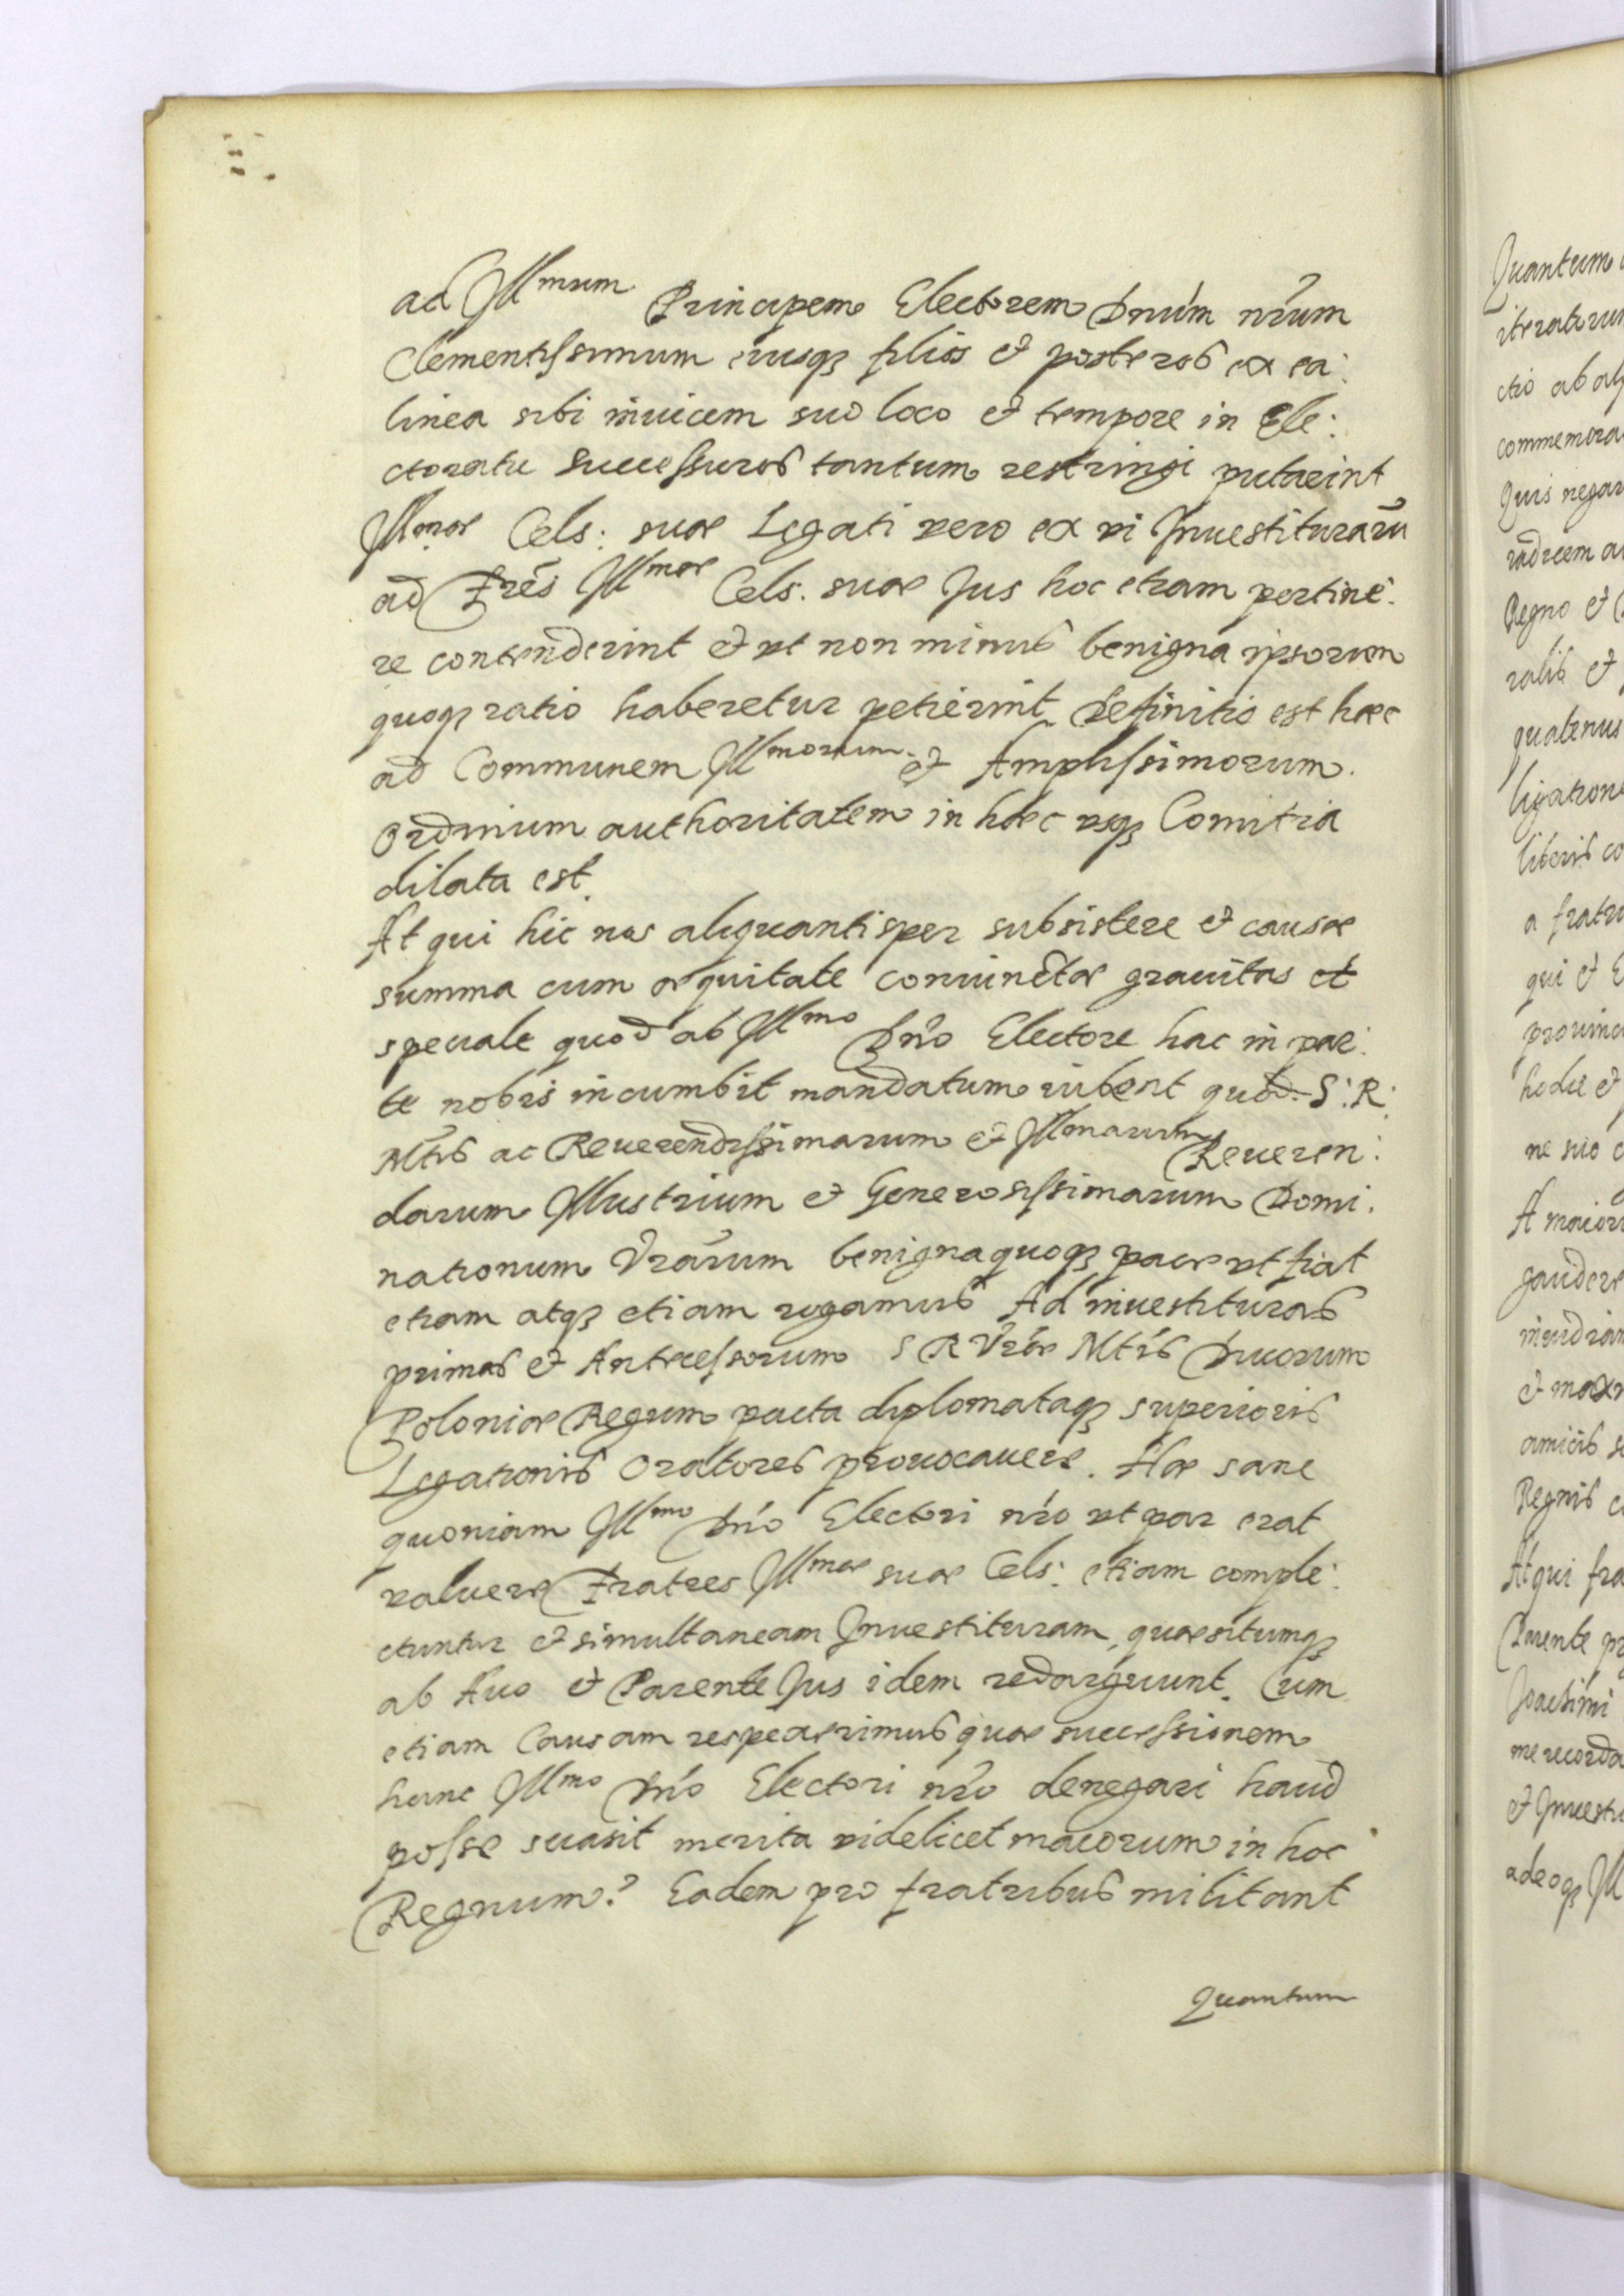 ad Illmum Principem Electorem Dnum nrum
Clementissimum eiusq; filios et posteros ex ea:
linea sibi inuicem suo loco et tempore in Ele:
ctoratu successuros tantum restringi putarint
Illmae Cels: suae Legati vero ex vi Inuestituraru
ad Fres Illmae Cels. suae Jus hoc etiam pertine:
re contenderint et vt non minus benigna ipsorum
quoq; ratio haberetur petierint definitio est haec
ad Communem Illmorum et Amplissimorum
Ordinum authoritatem in haec vsq; Comitia
dilata est.
At qui hic nos aliquantisper subsistere et causae
summa cum aequitate coniunctae grauitas et
speciale quod ab Illmo Dno Electore hac in par:
te nobis incumbit mandatum iubent quod S: R:
Mtis ac Reuerendissimarum et Illmarum Reueren:
darum Illustrium et Generosissimarum Domi:
nationum Vrarum benigna quoq; pace vt fiat
etiam atq; etiam rogamus Ad inuestituras
primas et Antecessorum S R Vrae Mtis Diuorum
Poloniae Regum pacta diplomataq; superioris
Legationis Oratores prouocauere. Hae sane
quoniam Illmo Dno Electori nro vt par erat
valuere Fratres Illmae suae Cels: etiam comple:
ctuntur et simultaneam Inuestituram, quaesitumq;
ab Auo et Parente Jus idem redarguunt. Cum
etiam Causam respexerimus quae successionem
hanc Illmo Dno Electori nro denegari haud
posse suasit merita videlicet maiorum in hoc
Regnum? Eadem pro fratribus militant
Quantum
Quantum
commemora
Quis negar
Regno et
ralis et
quatenus
ligatione
liberis co
a fratru
qui et
hodie et
ne suo
A maiori
gaudere
et maxi
amicis
Regnis
Atqui fra
Parente
Joachimi
me recorda
et Inuesti
adeoq; Ill